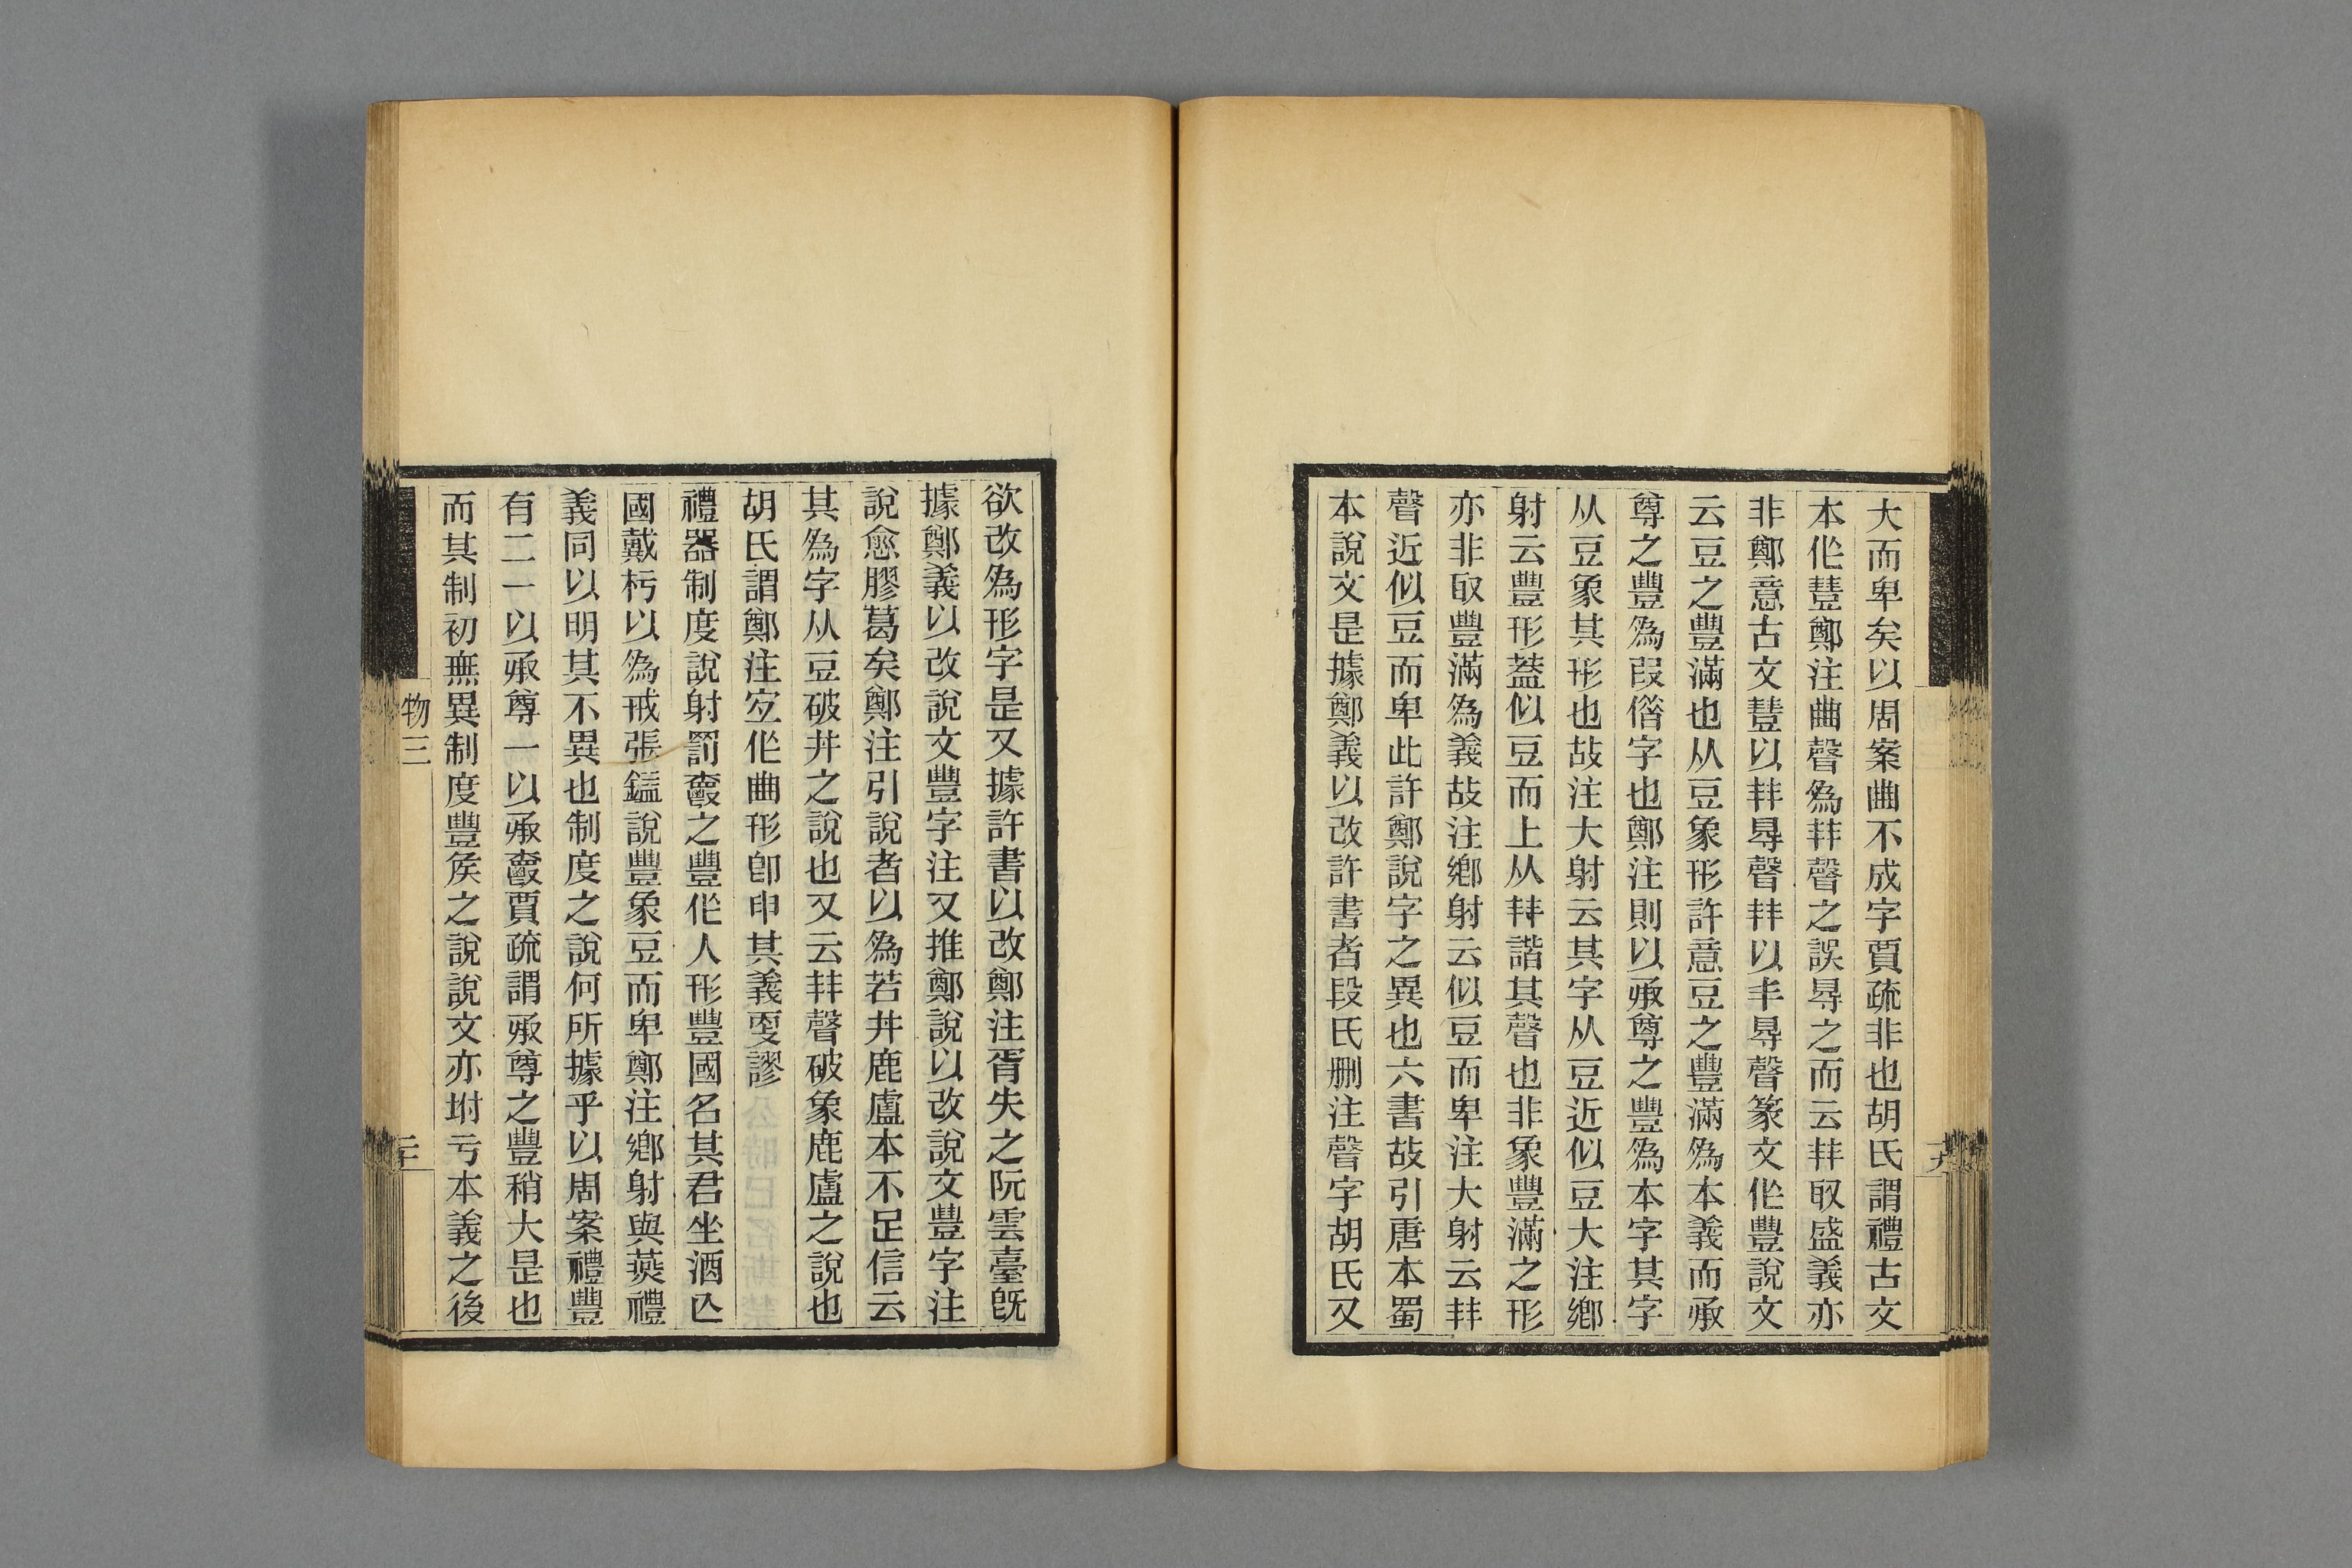 大而卑矣以周案曲不成字賈疏非也胡氏謂禮古文
本作㽁鄭注曲聲為𢆉聲之誤㝵之而云𢆉取盛義亦
非鄭意古文㽁以𢆉㝵聲𢆉以丰㝵聲篆文作豐說文
云豆之豐滿也从豆象形許意豆之豐滿為本義而承
尊之豐為叚借字也鄭注則以承尊之豐為本字其字
从豆象其形也故注大射云其字从豆近似豆大注鄉
射云豐形蓋似豆而上从𢆉諧其聲也非象豐滿之形
亦非取豐滿為義故注鄉射云似豆而卑注大射云𢆉
聲近似豆而卑此許鄭說字之異也六書故引唐本蜀
本說文是據鄭義以改許書者段氏刪注聲字胡氏又
欲改為形字是又據許書以改鄭注胥失之阮雲臺既
據鄭義以改說文豐字注又推鄭說以改說文豐字注
說愈膠葛矣鄭注引說者以為若井鹿盧本不足信云
其為字从豆破井之說也又云𢆉聲破象鹿盧之說也
胡氏謂鄭注㝎作曲形卽申其義㪅謬
禮器制度說射罰爵之豐作人形豐國名其君坐酒亾
國戴杇以為戒張鎰說豐象豆而卑鄭注鄉射與燕禮
義同以明其不異也制度之說何所據乎以周案禮豐
有二一以承尊一以承爵賈疏謂承尊之豐稍大是也
而其制初無異制度豐矦之說說文亦坿亏本義之後
物三
二十
十九